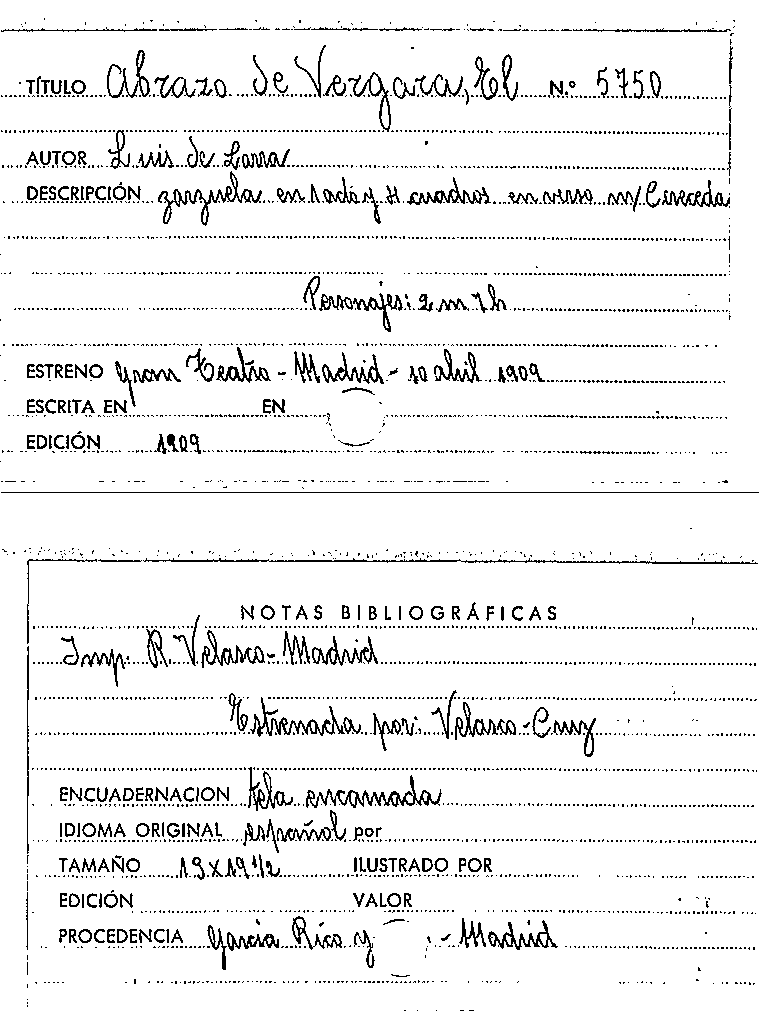 TÍTULO Abrazo de Vergara, El N.º 5750
AUTOR Luis de Larra
DESCRIPCIÓN zarzuela en 1 acto y 4 cuadros en verso m/ Cereceda
Personajes: 2 m 7 h
ESTRENO Gran Teatro - Madrid - 10 abril 1909
ESCRITA EN EN
EDICIÓN 1909
NOTAS BIBLIOGRÁFICAS
Imp. R. Velasco - Madrid
Estrenada por: Velasco - Cruz
ENCUADERNACION tela encarnada
IDIOMA ORIGINAL español por
TAMAÑO 13 x 19 1/2 ILUSTRADO POR
EDICIÓN VALOR
PROCEDENCIA García Rico y - Madrid